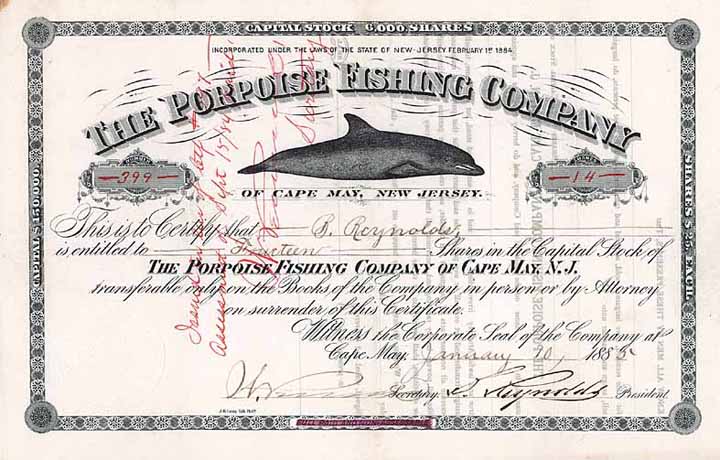 CAPITAL STOCK 6,000 SHARES
INCORPORATED UNDER THE LAWS OF THE STATE OF NEW-JERSEY FEBRUARY 1st 1884
THE PORPOISE FISHING COMPANY
NUMBER
399
SHARES
14
OF CAPE MAY, NEW JERSEY.
CAPITAL $150,000.
SHARES $25. EACH.
This is to Certify that B. Reynolds,
is entitled to Fourteen Shares in the Capital Stock of
THE PORPOISE FISHING COMPANY OF CAPE MAY, N.J.
transferable only on the Books of the Company in person or by Attorney
on surrender of this Certificate.
Witness the Corporate Seal of the Company at
Cape May, January 10, 1885
Secretary.
Reynolds President.
FULL PAID AND NON-ASSESSABLE
Issued in lieu of
Assessment of Sept 15/84
Secretary